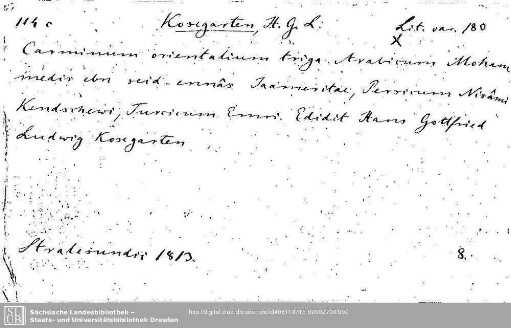 114 c Kosegarten, H. G. L. Lit. var. 180
X
Carminum orientalium triga. Arabicum Moham
medis ebn seid-ennâs Jaameritae, Persicum Nisâmi
Kendschewi, Turcicum Emri. Edidit Hans Gottfried
Ludwig Kosegarten
Stralesundii 1813. 8.
Sächsische Landesbibliothek –
Staats- und Universitätsbibliothek Dresden